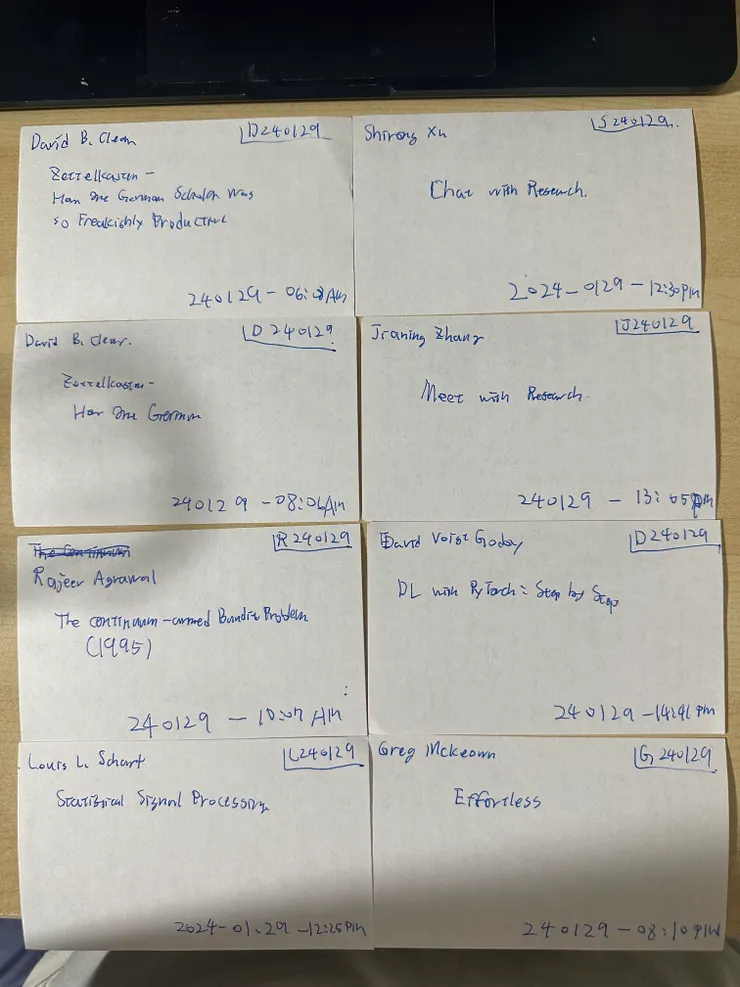 David B. Clear
D240129
Zettelkasten -
How One German Scholar Was
so Freakishly Productive
240129 - 06:01 AM
Shirong Xu
S240129.
Chat with Research.
2024-0129-12:30PM
David B. Clear.
D240129
Zettelkasten -
How One German
240129 - 08:06AM
Zhang
J240129
Meet with Research.
240129 - 13:05PM
The Continuum
R240129
Rajeev Agrawal
The continuum-armed Bandit Problem
(1995)
240129 - 10:07 AM
David Voigt Godoy
D240129
DL with PyTorch: Step by Step
240129 - 14:41 PM
Louis L. Scharf
L240129
Statistical Signal Processing
2024-01.29-12:25PM
Greg Mckeown
G240129
Effortless
240129 - 08:10PM